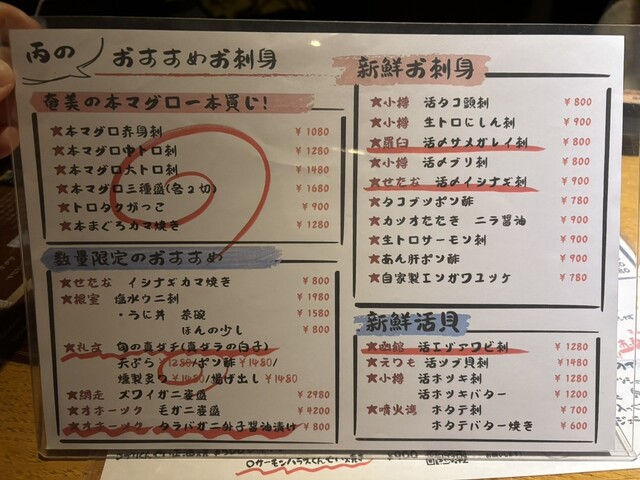 丙の
おすすめお刺身
奄美の本マグロ一本買い!
★本マグロ赤身刺 ¥1080
★本マグロ中トロ刺 ¥1280
★本マグロ大トロ刺 ¥1480
★本マグロ三種盛(各2切) ¥1680
★トロタクがっこ ¥900
★本まぐろカマ焼き ¥1280
数量限定のおすすめ
★せたな イシナギカマ焼き ¥800
★根室 塩水ウニ刺 ¥1980
・うに丼 茶碗 ¥1580
ほんの少し ¥800
★礼文 旬の真ダチ(真ダラの白子)
天ぷら¥1280/ポン酢¥1480/
燻製炙り¥1480/揚げ出し¥1480
★網走 ズワイガニ姿盛 ¥2980
★オホーツク 毛ガニ姿盛 ¥4200
★オホーツク タラバガニ外子醤油漬け ¥800
新鮮お刺身
★小樽 活タコ頭刺 ¥800
★小樽 生トロにしん刺 ¥900
★羅臼 活〆サメガレイ刺 ¥800
★小樽 活〆ブリ刺 ¥800
★せたな 活〆イシナギ刺 ¥900
★タコブツポン酢 ¥780
★カツオたたき ニラ醤油 ¥900
★生トロサーモン刺 ¥900
★あん肝ポン酢 ¥900
★自家製エンガワユッケ ¥780
新鮮活貝
★函館 活エゾアワビ刺 ¥1280
★えりも 活ツブ貝刺 ¥1480
★小樽 活ホッキ刺 ¥1280
活ホッキバター ¥1200
★噴火湾 ホタテ刺 ¥700
ホタテバター焼き ¥600